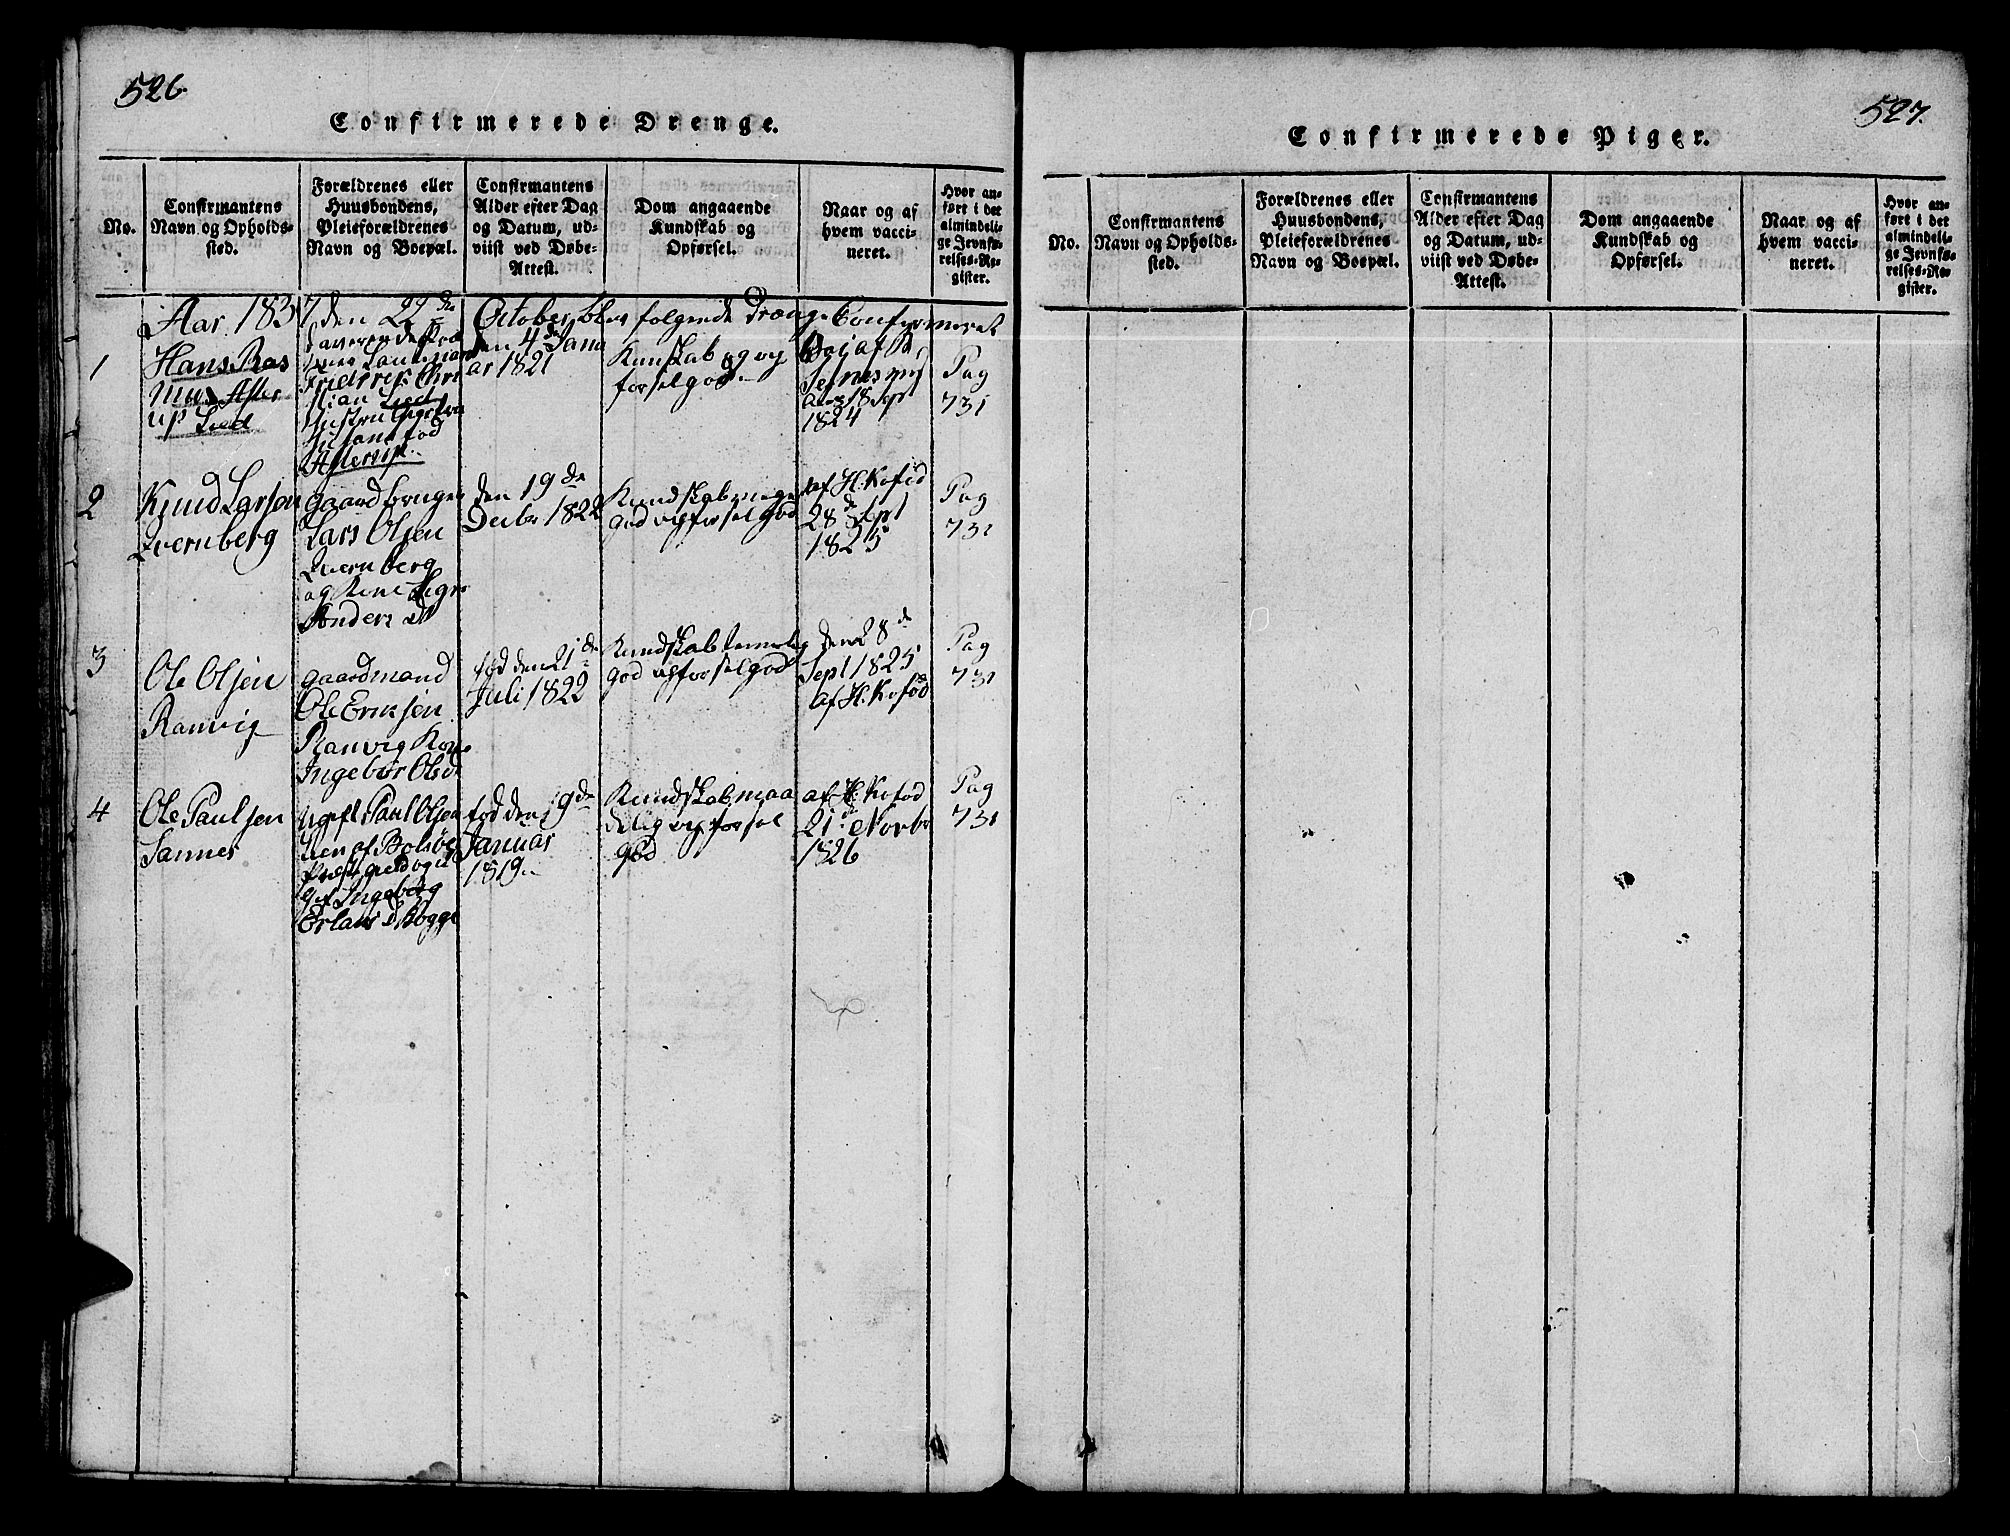 526.
Confirmerede Drenge.
No.
Confirmantens
Navn og Opholds-
sted.
Forældrenes eller
Huusbondens,
Pleieforældrenes
Navn og Boepæl.
Confirmantens
Alder efter Dag
og Datum, ud-
viist ved Døbe-
Attest.
Dom angaaende
Kundskab og
Opførsel.
Naar og af
hvem vacci-
neret.
Hvor an-
ført i det
almindeli-
ge Jevnfø-
relses-Re-
gister.
Aar 1837 den 22de October blev folgende Drænge Confirmeret
1
Hans Ras
mus Aster
up Lied
Friderik Chri
stian Lied
Hustru
fød
Asterup.
den 4de Janu
ar 1821
Kunskab og op
forsel god
18 Sept
1824
Pag
731
2
Knud Larsen
Qvernberg
gaardbruger
Lars Olsen
Qvernberg
og Kone Sigr
Anders d
den 19de
Decbr 1822
Kundskab
god opforsel god
af H. Kofod
28de Sept
1825
Pag
731
3
Ole Olsen
Ranvig
gaardmand
Ole Eriksen
Ranvig Kone
Ingebor Olsd
fød den 21de
Juli 1822
Kundskab temmelig
god opforsel god
den 28de
Sept 1825
af H. Kofod
Pag
731
4
Ole Paulsen
Sannes
Ugift Paul Olsen
af Bolsøe
Præstegield og u
gift Ingeborg
Erlans d Bogge
fød den 19de
Januar
1819
Kundskab maa
delig opforsel
god
af H. Kofod
21de Novbr
1826
Pag
731
527.
Confirmerede Piger.
No.
Confirmantens
Navn og Opholds-
sted.
Forældrenes eller
Huusbondens,
Pleieforældrenes
Navn og Boepæl.
Confirmantens
Alder efter Dag
og Datum, ud-
viist ved Døbe-
Attest.
Dom angaaende
Kundskab og
Opførsel.
Naar og af
hvem vacci-
neret.
Hvor an-
ført i det
almindeli-
ge Jevnfø-
relses-Re-
gister.